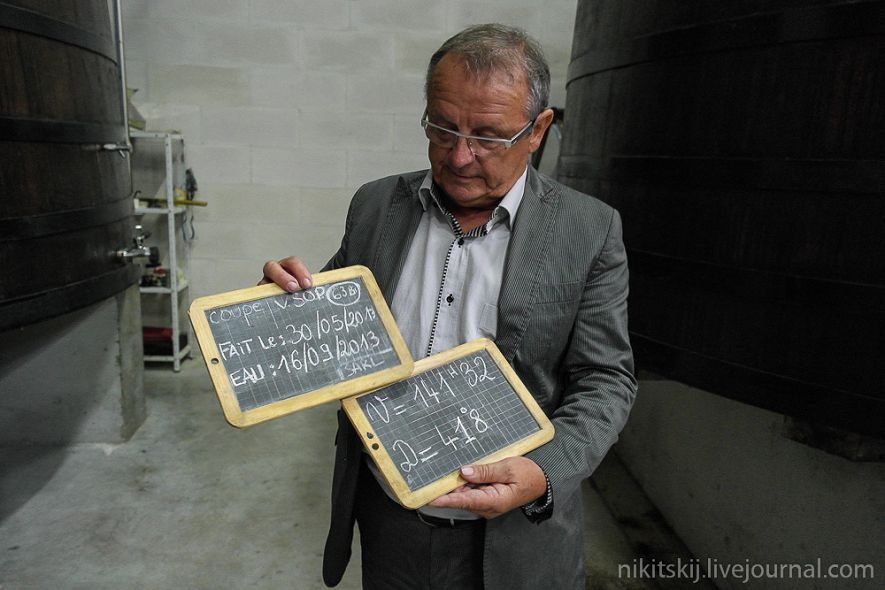 COUPE VSOP 63B
FAIT Le: 30/05/2013
EAU: 16/09/2013
V = 141H32
D = 41°8
nikitskij.livejournal.com